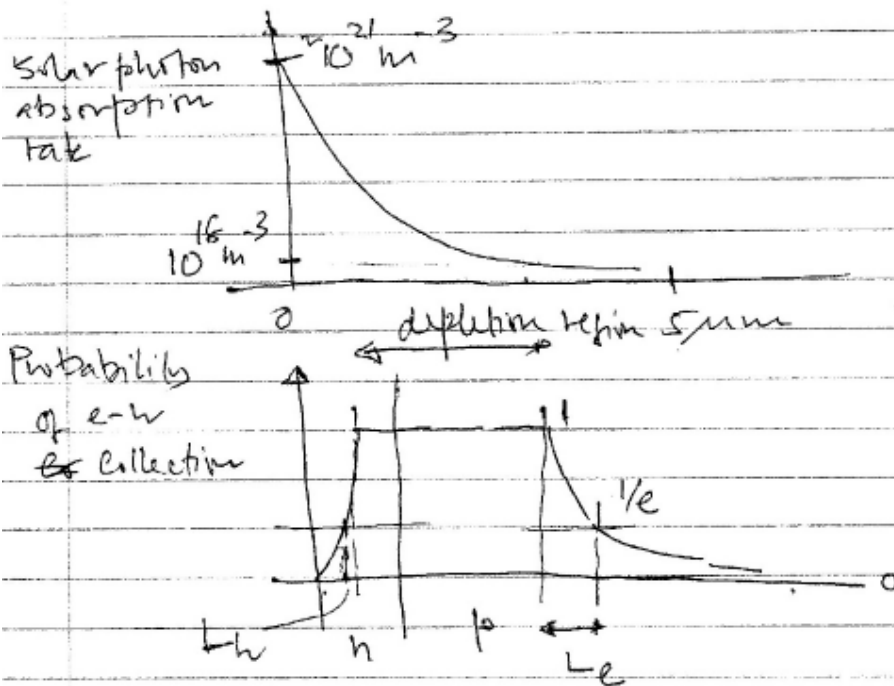 ~10²¹ m⁻³
Solar photon
absorption
rate
10¹⁸ m⁻³
0
depletion region 5 μm
Probability
of e-h
collection
1
1/e
0
L h
n
p
L e